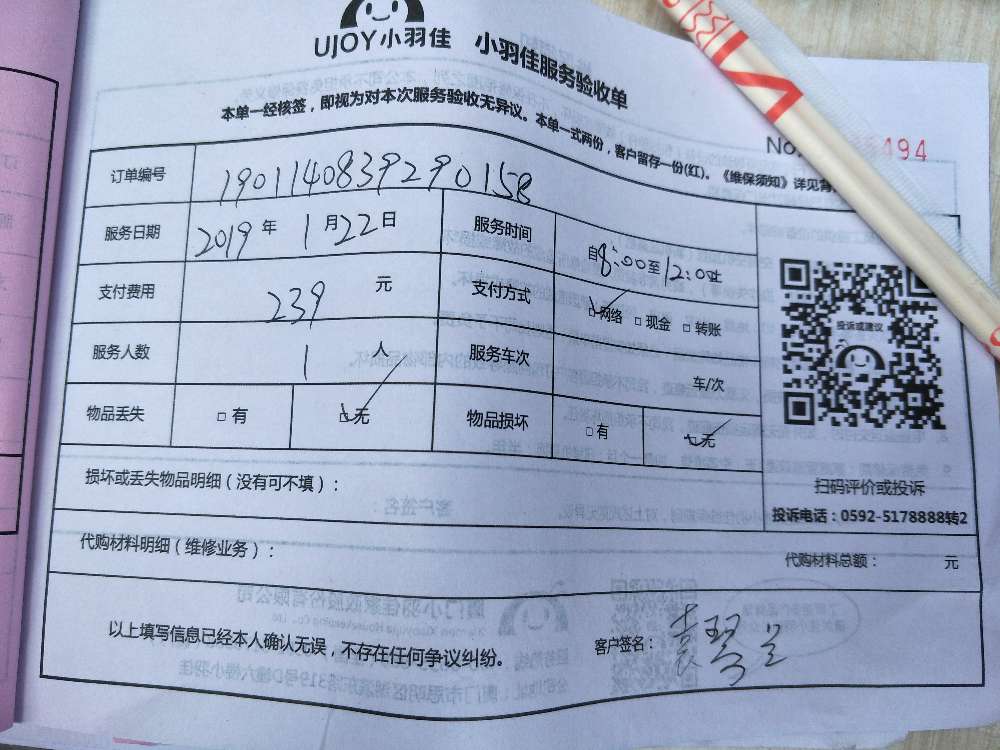 UJOY小羽佳 小羽佳服务验收单
本单一经核签，即视为对本次服务验收无异议。本单一式两份，客户留存一份(红)。《维保须知》详见背
No. 494
订单编号 190114083929 0158
服务日期 2019 年 1 月 22 日 服务时间 自8:00至12:00止
支付费用 239 元 支付方式 □网络 □现金 □转账
服务人数 1 人 服务车次 车/次
物品丢失 □有 □无 物品损坏 □有 □无
投诉或建议
损坏或丢失物品明细（没有可不填）：
扫码评价或投诉
投诉电话：0592-5178888转2
代购材料明细（维修业务）： 代购材料总额： 元
以上填写信息已经本人确认无误，不存在任何争议纠纷。 客户签名：袁琴兰